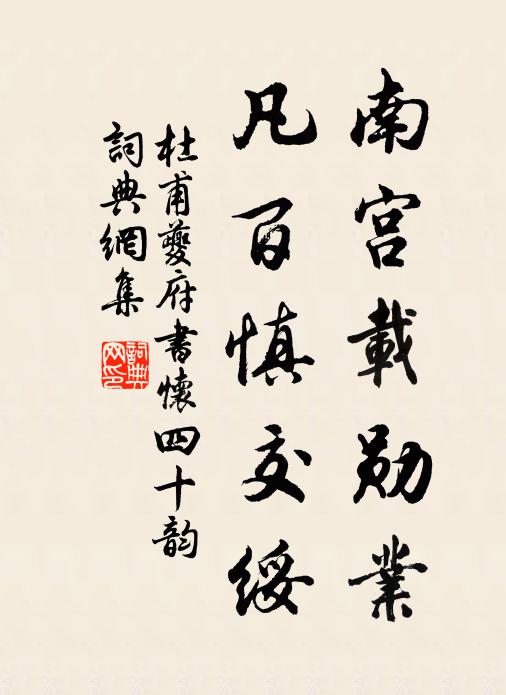 南宫載勛業
凡百慎交綏
杜甫夔府書懷四十韵
詞典網集
詞典
网印